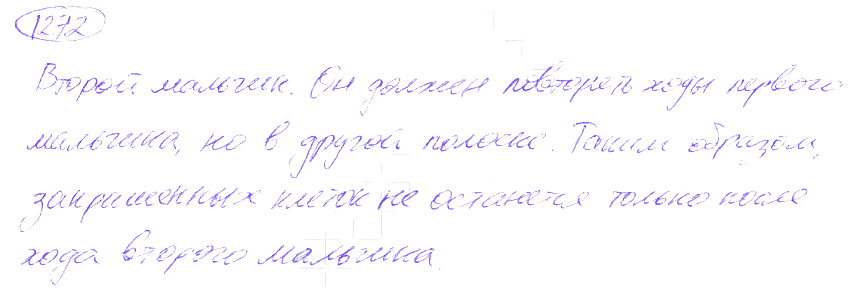 1272
Второй мальчик. Он должен повтореть ходы первого
мальчика, но в другой полоске. Таким образом,
закрашенных клеток не останется только после
хода второго мальчика.